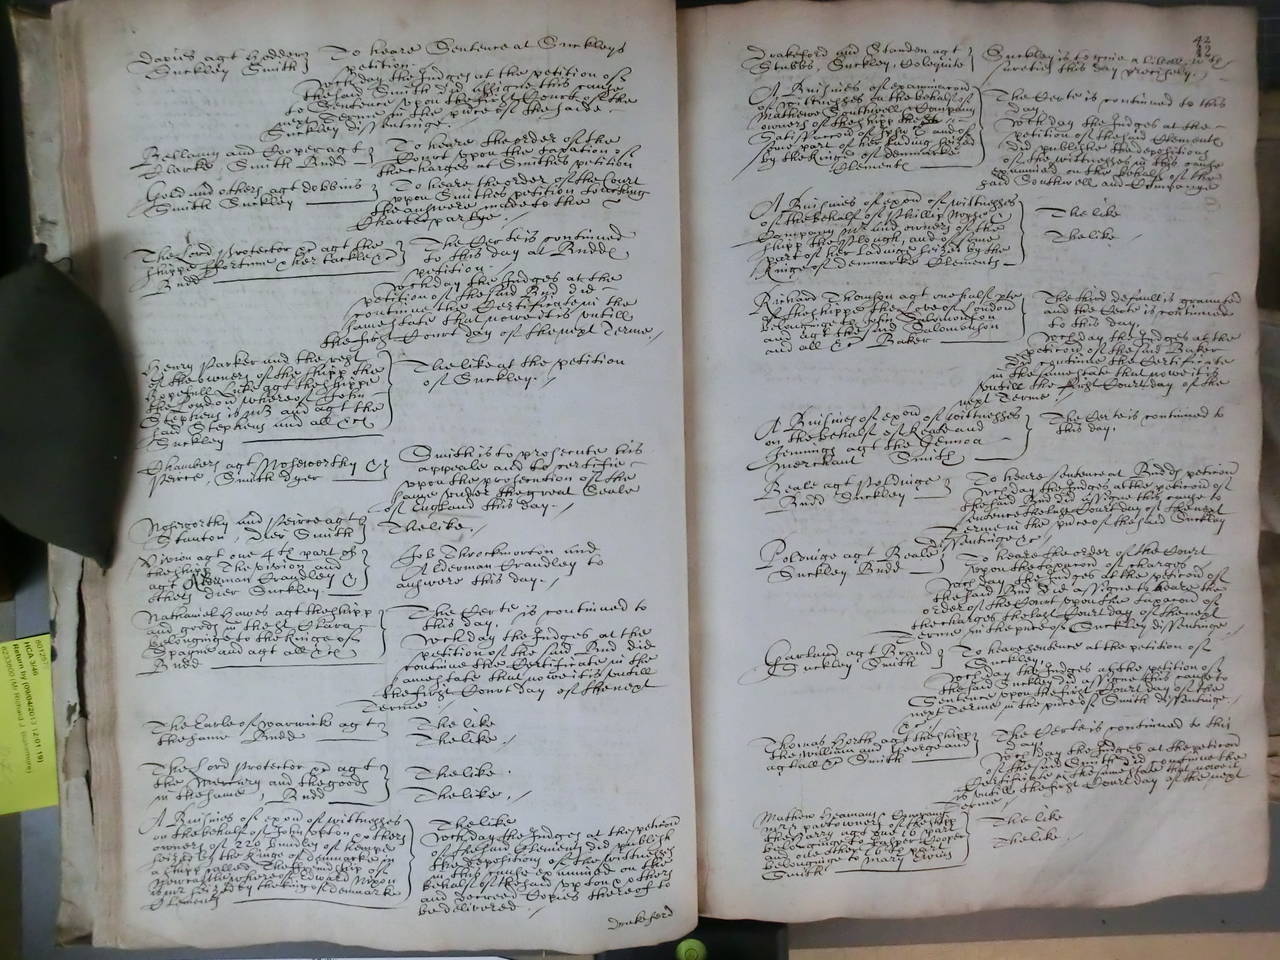 Davis agt Hedder
Suckley Smith
To heare Sentence at Suckleys
petition.
wch day the Judges at the petition of
the said Smith did assigne this cause
to Sentence upon the first Court of the
next Terme in the pnce of the said
Suckley dissentinge.
Bellamy and Cooper agt
Clarke, Smith Budd
To heare the order of the
Court upon the taxation of
the charges at Smithes petition
Gold and others agt Dobbins
Smith Suckley
To heare the order of the Court
upon Smithes petition touching
the answere made to the
Charter partye.
The Lord Protector &c agt the
shippe Fortune & her tackle &c
Budd
The Certe is continued
to this day at Budds
petition.
wch day the Judges at the
petition of the said Budd did
continue the Certificate in the
same state that now it is untill
the first Court day of the next Terme.
Henry Parker and the rest
of the owners of the shipp the
Hopefull Luke agt the shippe
the London whereof John
Stephens is Mr and agt the
said Stephens and all &c
Suckley
The like at the petition
of Suckley.
Chambers agt Nosworthy &
Peirce, Smith Dyer
Smith is to prosecute his
appeale and to certifie
upon the prosecution of the
same under the great Seale
of England this day.
Nosworthy and Peirce agt
Stanton, Dier Smith
The like.
Vivion agt one 4th part of
the shipp the Vivion and
agt Alderman Crandley &
others Dier Suckley
Job Throckmorton and
Alderman Crandley to
answere this day.
Nathaniel Hawes agt the shipp
and goods in the St Clara
belonginge to the Kinge of
Spayne and agt all &c
Budd
The Certe is continued to
this day.
wch day the Judges at the
petition of the said Budd did
continue the Certificate in the
same state that now it is untill
the first Court day of the next
Terme
The Earle of Warwicke agt
the same Budd
The like
The like.
The Lord Protector &c agt
the Mercury and the goods
in the same, Budd
The like.
The like.
A Busines of exon of wittnesses
on the behalf of John Upton & others
owners of 220 bundles of hempe
seized by the Kinge of Denmarke in
a shipp called the friendship of
Newcastle whereof Edward Nixon
is Mr seized by the King of Denmarke
Clements
The like
wch day the Judges at the petition
of the said Clements did publish
the depositions of the wittnesses
in this cause examined on the
behalf of the said Upton & others
and decreed Copies thereof to
be delivered.
Drakeford
42
Drakeford and Standen agt
Stubbs, Suckley, Colequite
Suckley is to give a libell with
sureties this day precisely.
A Busines of examinacon
of wittnesses on the behalf of
Mathewe Southwell & Company
owners of the shipp the
Satisfaccon of John & and of
some part of her lading seized
by the Kinge of Denmarke
Clements
The Certe is continued to this
day
wch day the Judges at the
petition of the said Clements
did publishe the depositions
of the wittnesses in this cause
examined on the behalf of the
said Southwell and Companye
A Busines of exon of wittnesses
of the behalf of Phillip
Company Mr and owners of the
shipp the Plough, and of some
part of her ladinge seized by the
Kinge of Denmarke Clements
The like
The like.
Richard Thomson agt one half pte
of the shippe the Love of London
belonginge to John Salomonson
and agt the said Salomonson
and all &c Baker
The third default is graunted
and the Certe is continued
to this day.
wch day the Judges at the
peticon of the said Baker
did continue the Certificate
in the same state that nowe it is
untill the first Court day of the
next Terme
A Busines of exon of wittnesses
on the behalf of Keate and
Jennings agt the Genoa
Merchant Smith
The Certe is continued to
this day.
Beale agt Poldnige
Budd Suckley
To heare sentence at Budds peticon
wch day the Judges at the peticon of
the said Budd did assigne this cause to
sentence the last Court day of the next
Terme in the pnce of the said Suckley
dissentinge &c.
Poldnige agt Beale
Suckley Budd
To heare the order of the Court
upon the taxacon of charges
wch day the Judges at the peticon of
the said Budd did assigne to heare the
order of the Court upon the taxacon of
the charges the last Court day of the next
Terme in the pnce of Suckley dissentinge.
Garland agt Brand
Suckley Smith
To heare sentence at the peticon of
Suckley.
wch day the Judges at the petition of
the said Suckley did assigne this cause to
Sentence upon the first Court day of the
next Terme in the pnce of Smith dissentinge
&c
Thomas North agt the shipp
the William and George and
agt all &c Smith
The Certe is continued to this
day.
wch day the Judges at the peticon
of the said Smith did continue the
Certificate in the same state that nowe it
is untill the first Court day of the next
Terme.
Mathew Seaman
Mr & part owner of the shipp
the Harry agt one 16 part
belonginge to Jasper Cooper
and one other 16th part
belonginge to Mary
Smith
The like
The like.
HCA 3/46
Return by (09/04/2013 12:01:19)